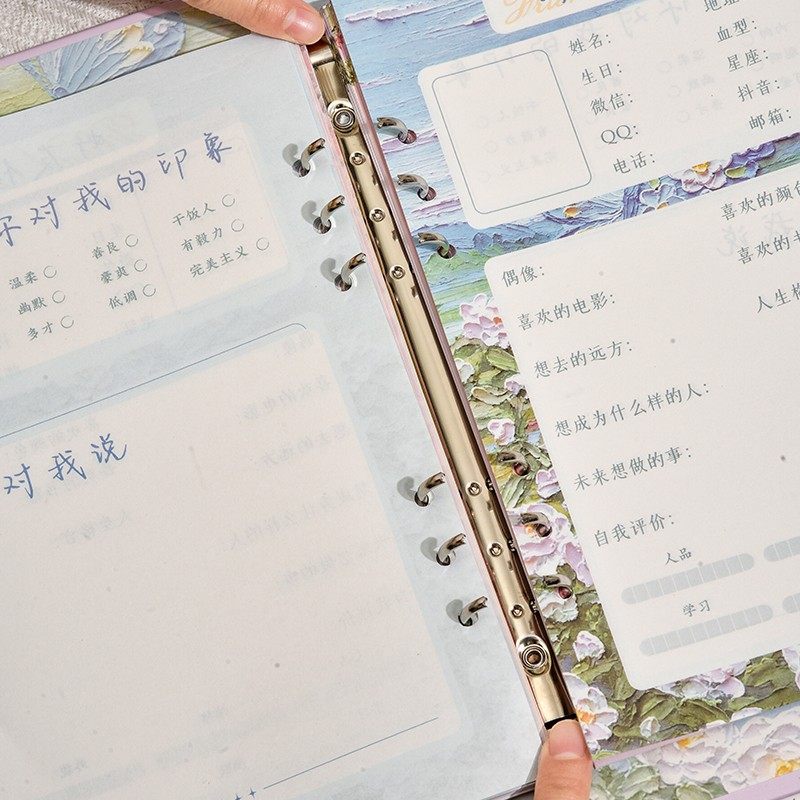 尔对我的印象
温柔 善良 干饭人
幽默 豪爽 有毅力
多才 低调 完美主义
对我说
姓名:
血型:
生日:
星座:
微信:
抖音:
QQ:
邮箱:
电话:
喜欢的颜色
偶像:
喜欢的
喜欢的电影:
人生
想去的远方:
想成为什么样的人:
未来想做的事:
自我评价:
人品
学习